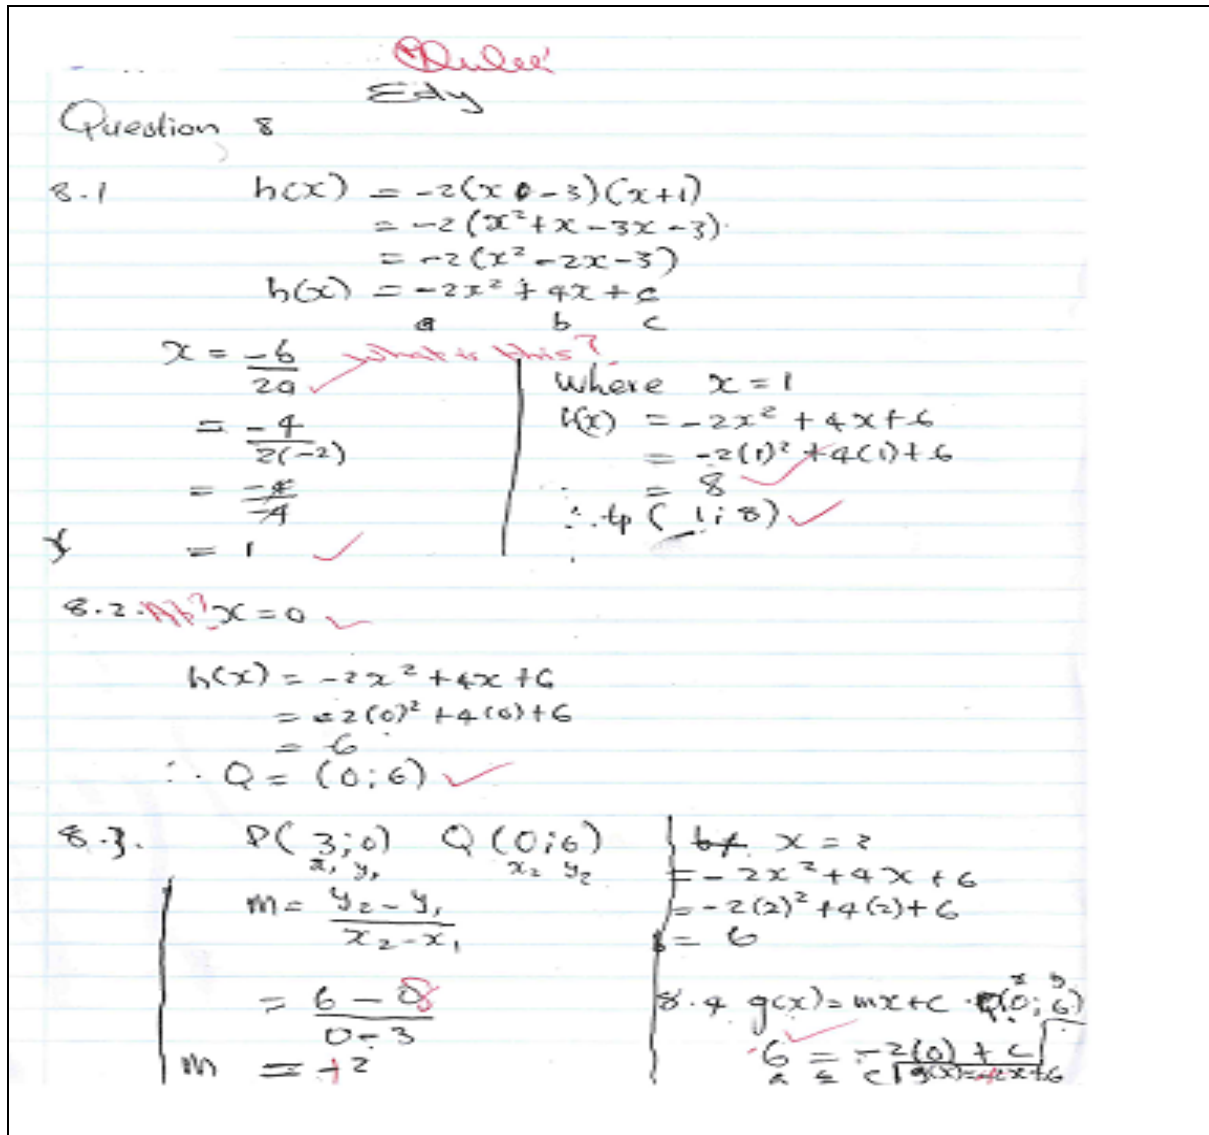 Edy
Question 8
8.1 h(x) = -2(x - 3)(x+1)
= -2(x²+x-3x-3)
= -2(x²-2x-3)
h(x) = -2x² + 4x + c
a b c
x = -b/2a What is this?
= -4/2(-2)
= -4/-4
= 1
where x = 1
h(x) = -2x² + 4x + 6
= -2(1)² + 4(1) + 6
= 8
∴ tp (1; 8)
8.2. At? x = 0
h(x) = -2x² + 4x + 6
= -2(0)² + 4(0) + 6
= 6
∴ Q = (0; 6)
8.3. P(3;0) Q(0;6)
x₁ y₁ x₂ y₂
m = y₂ - y₁/x₂ - x₁
= 6 - 0/0 - 3
m = -2
x = 2
= -2x² + 4x + 6
= -2(2)² + 4(2) + 6
= 6
8.4 g(x) = mx + c (0; 6)
x y
6 = -2(0) + c
6 = c g(x) = -2x + 6